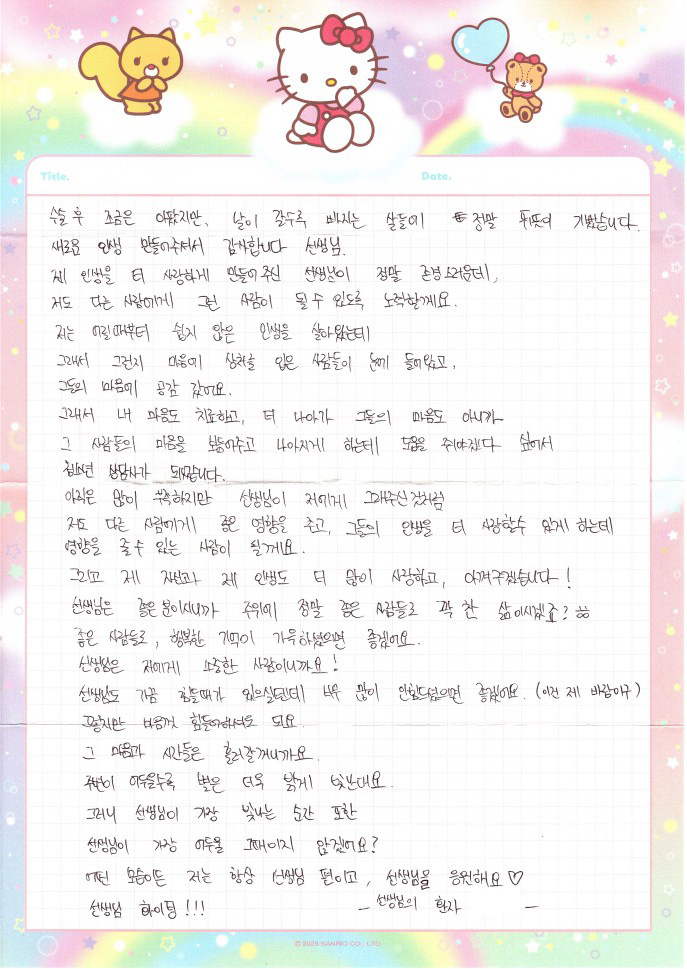 Title.
Date.
수술 후 조금은 아팠지만, 날이 갈수록 빠지는 살들에 정말 뿌듯하고 기뻤습니다.
새로운 인생 만들어주셔서 감사합니다 선생님.
제 인생을 더 사랑하게 만들어 주신 선생님이 정말 존경스러운데,
저도 다른 사람에게 그런 사람이 될 수 있도록 노력할게요.
저는 어릴때부터 쉽지 않은 인생을 살아왔는데
그래서 그런지 마음에 상처를 입은 사람들이 눈에 들어왔고,
그들의 마음에 공감 갔어요.
그래서 내 마음도 치료하고, 더 나아가 그들의 마음도 아니까
그 사람들의 마음을 보듬어주고 나아지게 하는데 도움을 줘야겠다 싶어서
청소년 상담사가 되었습니다.
아직은 많이 부족하지만 선생님이 저에게 그래주신것처럼
저도 다른 사람에게 좋은 영향을 주고, 그들의 인생을 더 사랑할수 있게 하는데
영향을 줄 수 있는 사람이 될게요.
그리고 제 자신과 제 인생도 더 많이 사랑하고, 아껴주겠습니다!
선생님은 좋은 분이시니까 주위에 정말 좋은 사람들로 꽉 찬 삶이시겠죠? ㅎㅎ
좋은 사람들로, 행복한 기억이 가득하셨으면 좋겠어요.
선생님은 저에게 소중한 사람이니까요!
선생님도 가끔 힘들때가 있으실텐데 너무 많이 안힘드셨으면 좋겠어요. (이건 제 바람이구)
그렇지만 마음껏 힘들어하셔도 되요.
그 마음과 시간들은 흘러갈꺼니까요.
주변이 어두울수록 별은 더욱 밝게 빛난대요.
그러니 선생님이 가장 빛나는 순간 또한
선생님이 가장 어두울 그때이지 않겠어요?
어떤 모습이든 저는 항상 선생님 편이고, 선생님을 응원해요♡
선생님 화이팅!!! - 선생님의 환자 -
SANRIO CO., LTD.